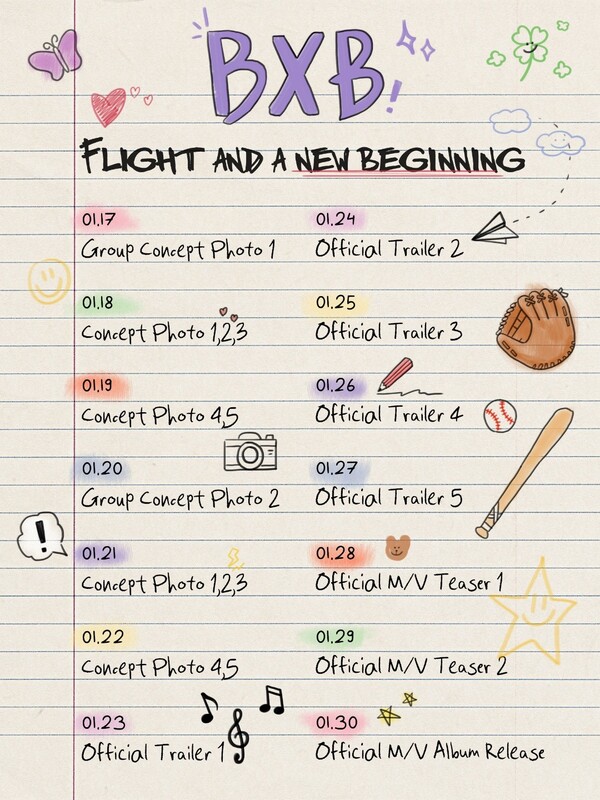 BXB!
FLIGHT AND A NEW BEGINNING
01.17
Group Concept Photo 1
01.18
Concept Photo 1,2,3
01.19
Concept Photo 4,5
01.20
Group Concept Photo 2
01.21
Concept Photo 1,2,3
01.22
Concept Photo 4,5
01.23
Official Trailer 1
01.24
Official Trailer 2
01.25
Official Trailer 3
01.26
Official Trailer 4
01.27
Official Trailer 5
01.28
Official M/V Teaser 1
01.29
Official M/V Teaser 2
01.30
Official M/V Album Release
!